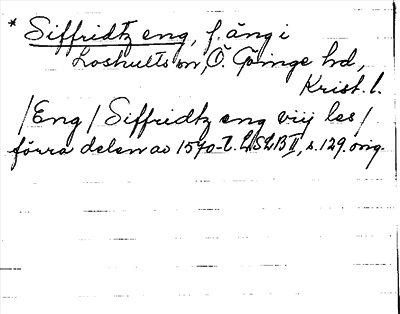 * Siffridtz eng, f. äng i
Loshults sn, Ö. Göinge hd,
Krist. l.
/Eng/ Siffridtz eng viij les/
förra delen av 1540-t. LSLB II, s. 129. orig.